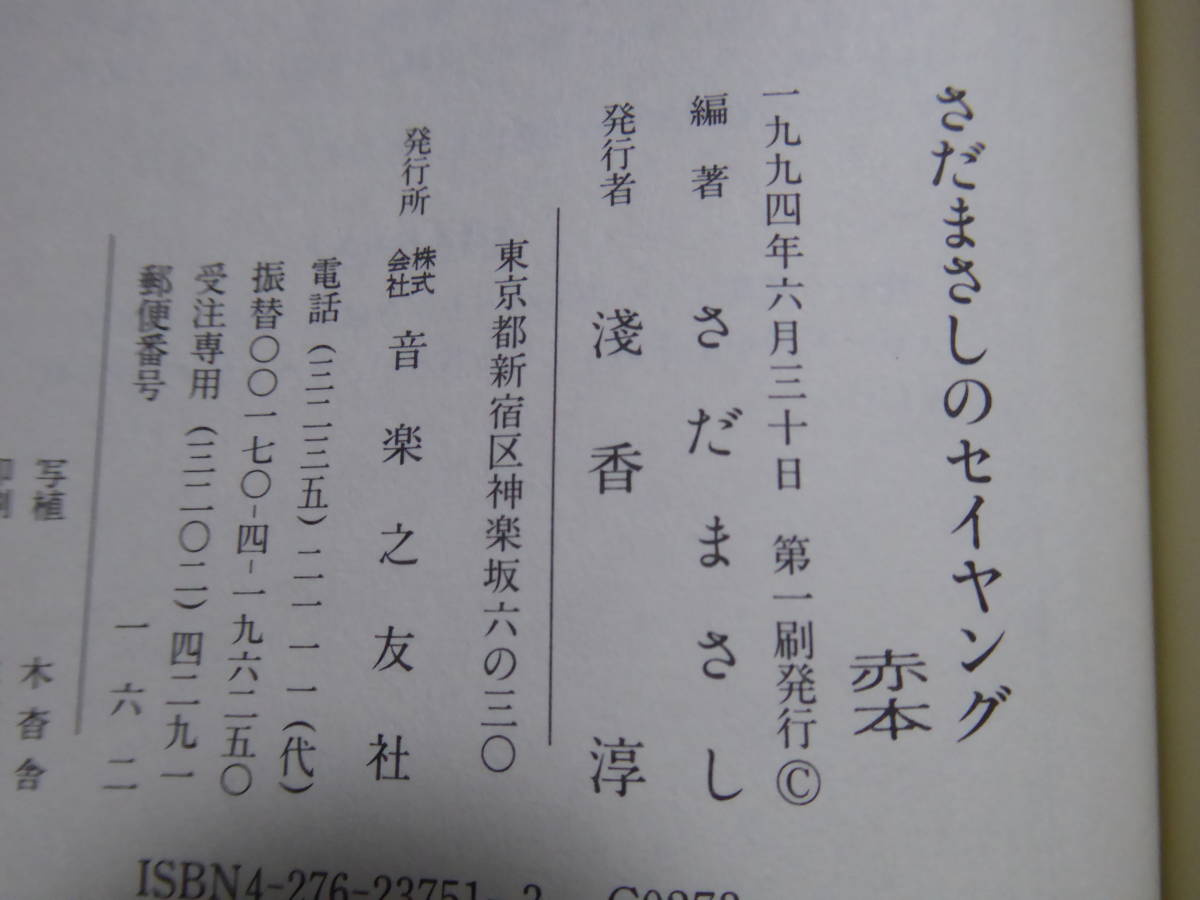 さだまさしのセイヤング
赤本
一九九四年六月三十日 第一刷発行©
編著 さだまさし
発行者 淺香 淳
東京都新宿区神楽坂六の三〇
発行所 株式会社 音楽之友社
電話(三二三五)二一一一(代)
振替〇〇一七〇-四-一九六二五〇
受注専用(三二〇二)四二九一
郵便番号 一六二
写植
印刷
ISBN4-276-23751-2 C0273